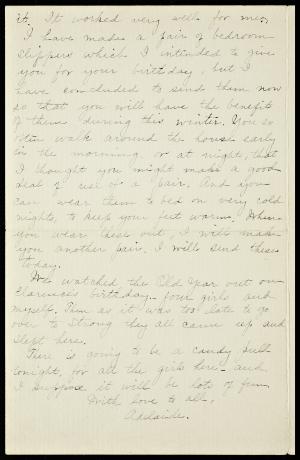 it. It worked very well for me.
I have made a pair of bedroom
slippers which I intended to give
you for your birthday, but I
have concluded to send them now
so that you will have the benefit
of them during this winter. You so
often walk around the house early
in the morning, or at night, that
I thought you might make a good
deal of use of a pair. And you
can wear them to bed on very cold
nights, to keep your feet warm. When
you wear these out, I will make
you another pair. I will send these
today.
We watched the Old Year out on
Clarence's birthday. four girls and
myself. as it was too late to go
over to Strong they all came up and
slept here.
There is going to be a candy pull
tonight, for all the girls here and
I suppose it will be lots of fun.
With love to all,
Adelaide.